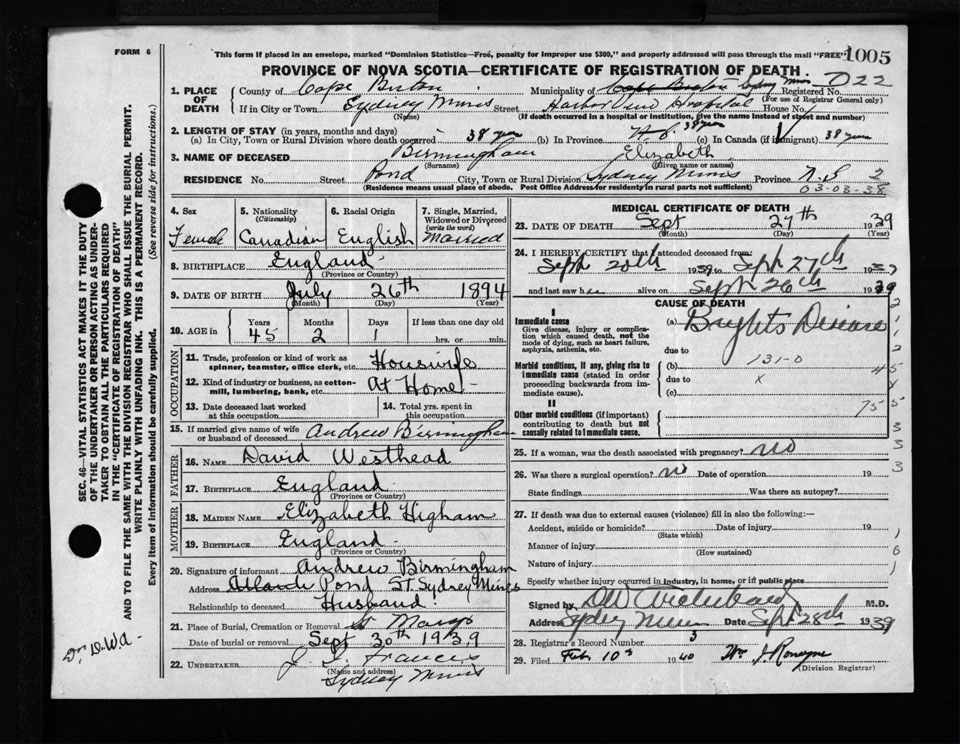 FORM 6
This form if placed in an envelope, marked "Dominion Statistics—Free, penalty for improper use $300," and properly addressed will pass through the mail "FREE"
1005
PROVINCE OF NOVA SCOTIA—CERTIFICATE OF REGISTRATION OF DEATH
1. PLACE OF DEATH
County of Cape Breton
Municipality of Cape Breton Sydney Mines Registered No. 022
(For use of Registrar General only)
If in City or Town Sydney Mines Street Harbor View Hospital House No.
(Name) (If death occurred in a hospital or institution, give the name instead of street and number)
2. LENGTH OF STAY (in years, months and days)
(a) In City, Town or Rural Division where death occurred 38 years (b) In Province 38 years (c) In Canada (if immigrant) 38 years
3. NAME OF DECEASED Birmingham Elizabeth
(Surname) (Given name or names)
RESIDENCE No. Street Pond City, Town or Rural Division Sydney Mines Province N.S 2
(Residence means usual place of abode. Post Office Address for residents in rural parts not sufficient)
03-03-38
4. Sex
Female
5. Nationality
(Citizenship)
Canadian
6. Racial Origin
English
7. Single, Married, Widowed or Divorced
(write the word)
Married
8. BIRTHPLACE England
(Province or Country)
9. DATE OF BIRTH July 26th 1894
(Month) (Day) (Year)
10. AGE in
Years Months Days If less than one day old
45 2 1 hrs. or min.
OCCUPATION
11. Trade, profession or kind of work as spinner, teamster, office clerk, etc. Housewife
12. Kind of industry or business, as cotton-mill, lumbering, bank, etc. At Home
13. Date deceased last worked at this occupation
14. Total yrs. spent in this occupation
15. If married give name of wife or husband of deceased Andrew Birmingham
FATHER
16. NAME David Westhead
17. BIRTHPLACE England
(Province or Country)
MOTHER
18. MAIDEN NAME Elizabeth Higham
19. BIRTHPLACE England
(Province or Country)
20. Signature of informant Andrew Birmingham
Address Pond St. Sydney Mines
Relationship to deceased Husband
21. Place of Burial, Cremation or Removal St Marys
Date of burial or removal Sept 30th 1939
22. UNDERTAKER J. Francis
(Name and address)
Sydney Mines
MEDICAL CERTIFICATE OF DEATH
23. DATE OF DEATH Sept 27th 1939
(Month) (Day) (Year)
24. I HEREBY CERTIFY that I attended deceased from:
Sept 20th 1939 to Sept 27th 1939
and last saw her alive on Sept 26th 1939
CAUSE OF DEATH
I
Immediate cause
Give disease, injury or complication which caused death, not the mode of dying, such as heart failure, asphyxia, asthenia, etc.
(a) Brights Disease
due to
Morbid conditions, if any, giving rise to immediate cause (stated in order proceeding backwards from immediate cause).
(b) 131-0
due to x
(c)
II
Other morbid conditions (if important) contributing to death but not causally related to immediate cause.
75
25. If a woman, was the death associated with pregnancy? no
26. Was there a surgical operation? no Date of operation 19
State findings Was there an autopsy?
27. If death was due to external causes (violence) fill in also the following:—
Accident, suicide or homicide? Date of injury 19
(State which)
Manner of injury
(How sustained)
Nature of injury
Specify whether injury occurred in industry, in home, or in public place
Signed by M.D.
Address Sydney Mines Date Sept 28th 1939
28. Registrar's Record Number 3
29. Filed Feb 10 1940 Wm J. Ronayne
(Division Registrar)
SEC. 46—VITAL STATISTICS ACT MAKES IT THE DUTY OF THE UNDERTAKER OR PERSON ACTING AS UNDERTAKER TO OBTAIN ALL THE PARTICULARS REQUIRED IN THE "CERTIFICATE OF REGISTRATION OF DEATH" AND TO FILE THE SAME WITH THE DIVISION REGISTRAR WHO SHALL ISSUE THE BURIAL PERMIT.
WRITE PLAINLY WITH UNFADING INK. THIS IS A PERMANENT RECORD.
Every item of information should be carefully supplied. (See reverse side for instructions.)